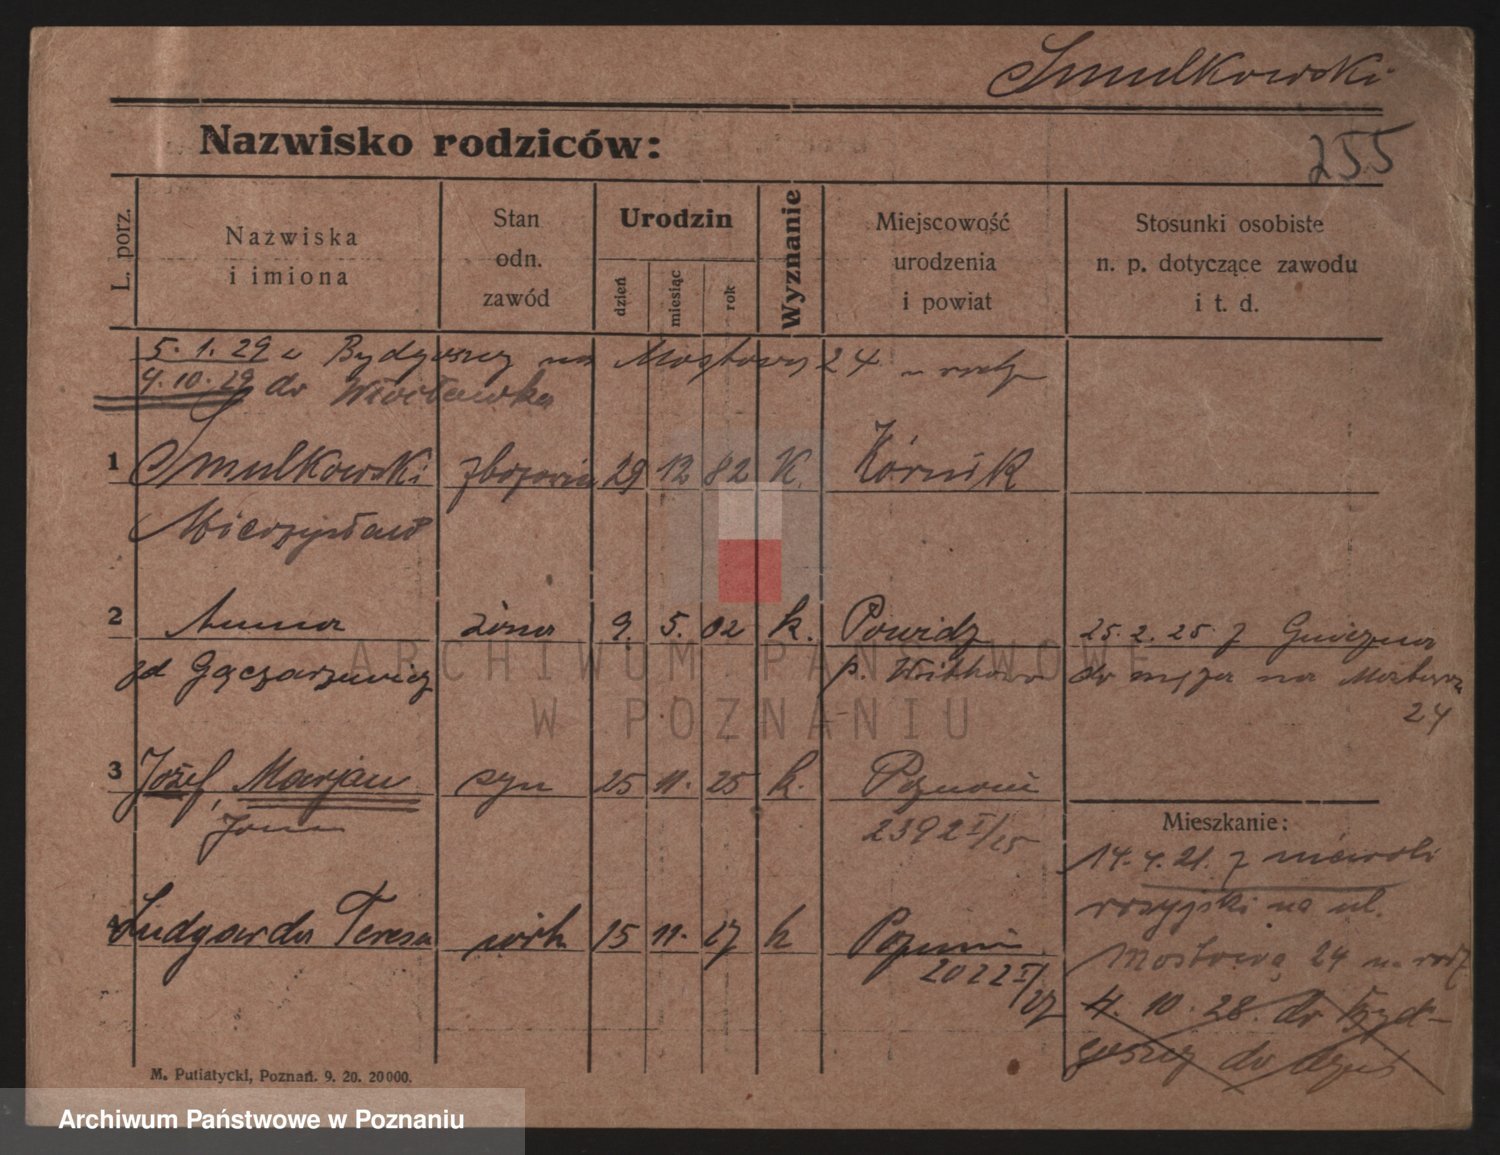 Smulkowski
Nazwisko rodziców:
255
L. porz.
Nazwiska
i imiona
Stan
odn.
zawód
Urodzin
dzień
miesiąc
rok
Wyznanie
Miejscowość
urodzenia
i powiat
Stosunki osobiste
n. p. dotyczące zawodu
i t. d.
5. 1. 29 z Bydgoszczy na Mostową 24
4. 10. 29 do Włocławka
1 Smulkowski 29 12 82 K. Kórnik
Mieczysław
2 Anna żona 9. 5. 02 k. Powidz 25. 2. 25. z Gniezna
zd Gączarzewicz p. Witkowo do męża na Mostową
24
3 Józef, Marjan syn 25 11. 25 k. Poznań
Jan 2392 I/25
Mieszkanie:
14. 4. 21. z niewoli
rosyjski na ul.
4 Ludgarda Teresa córk 15 11. 27 k Poznań
Mostową 24 u rodz
2022 I/27
4. 10. 28. do Bydgoszczy do
M. Putiatycki, Poznań. 9. 20. 20000.
ARCHIWUM PAŃSTWOWE
W POZNANIU
Archiwum Państwowe w Poznaniu